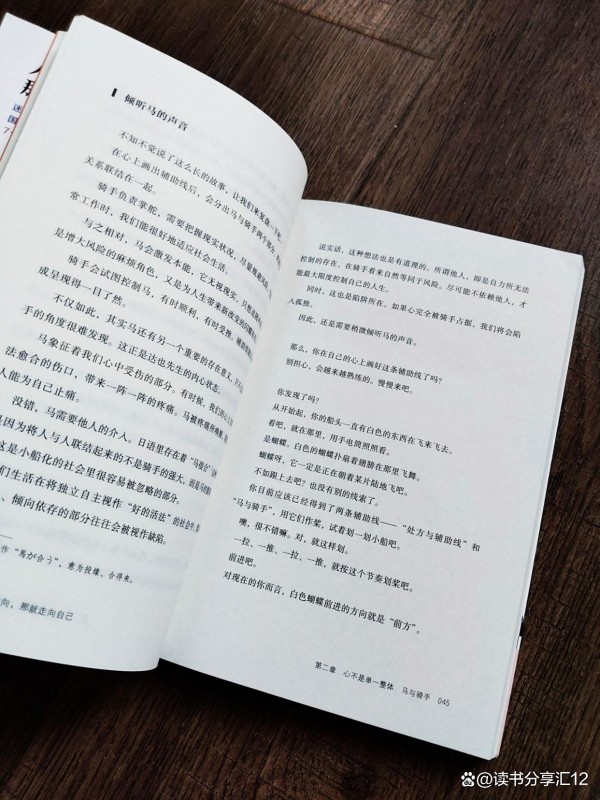 倾听马的声音
不知不觉说了这么长的故事，让我们来复盘一下吧
在心上画出辅助线后，会分出马与骑手两个部分
关系联结在一起。
骑手负责掌舵，需要把握现实状况，尽量规避风险
常工作时，我们能很好地适应社会生活。
与之相对，马会激发本能，它无视现实，只想
是增大风险的麻烦角色，又是为人生带来新改变的
骑手会试图控制马，有时顺利，有时受挫。辅助线
成呈现得一目了然。
不仅如此，其实马还有另一个重要的存在意义
手的角度很难发现。这正是达也先生的内心状态。
马象征着我们心中受伤的部分。有时候，我们的心
法愈合的伤口，带来一阵一阵的疼痛。马被疼痛所
人能为自己止痛。
没错，马需要他人的介入。日语里存在着“马很合”
是因为将人与人联结起来的不是骑手的强大，而是马
这是小船化的社会里很容易被忽略的部分。
们生活在将独立自主视作“好的活法”的社会中
、倾向依存的部分往往会被视作缺陷。
作“馬が合う”，意为投缘、合得来。
向，那就走向自己
说实话，这种想法也是有道理的。所谓他人，即是自力所无法
控制的存在，在骑手看来自然等同于风险。尽可能不依赖他人，才
能最大限度控制自己的人生。
同时，这也是陷阱所在。如果心完全被骑手占据，我们将会陷
入孤独。
因此，还是需要稍微倾听马的声音。
那么，你在自己的心上画好这条辅助线了吗？
别担心，会越来越熟练的。慢慢来吧。
你发现了吗？
从开始起，你的船头一直有白色的东西在飞来飞去。
看吧，就在那里，用手电筒照照看。
是蝴蝶。白色的蝴蝶扑扇着翅膀在那里飞舞。
蝴蝶呀，它一定是正在朝着某片陆地飞吧。
不如跟上去吧？也没有别的线索了。
你目前应该已经得到了两条辅助线——“处方与辅助线”和
“马与骑手”，用它们作桨，试着划一划小船吧。
噢，很不错嘛。对，就这样划。
一拉、一推、一拉、一推，就按这个节奏划桨吧。
前进吧。
对现在的你而言，白色蝴蝶前进的方向就是“前方”。
第二章 心不是单一整体 马与骑手 045
@读书分享汇12